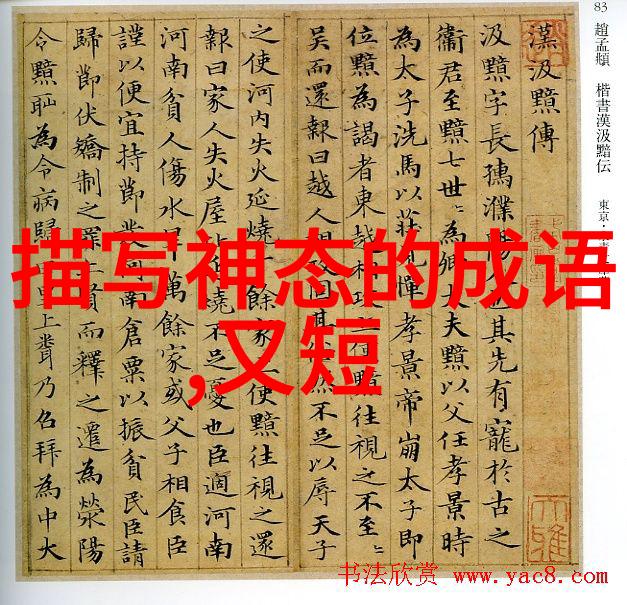 83 趙孟頫 楷書漢汲黯伝 東京
漢汲黯傳
汲黯字長孺濮陽其先有寵於古之
衞君至黯七世〻為卿大夫黯以父任孝景時
為太子洗馬以莊見憚孝景帝崩太子即
位黯為謁者東越相攻上使黯往視之不至〻
吳而還報曰越人相攻固其俗然不足以辱天子
之使河内失火延燒餘家上使黯往視之還
報曰家人失火屋比延燒不足憂也臣適河南
河南貧人傷水旱萬餘家或父子相食臣
謹以便宜持節發河南倉粟以振貧民臣請
歸節伏矯制之罪上賢而釋之遷為滎陽
令黯恥為令病歸里上聞乃召拜為中大
描写神态的成语
,又短
书法欣赏 www.yac8.com